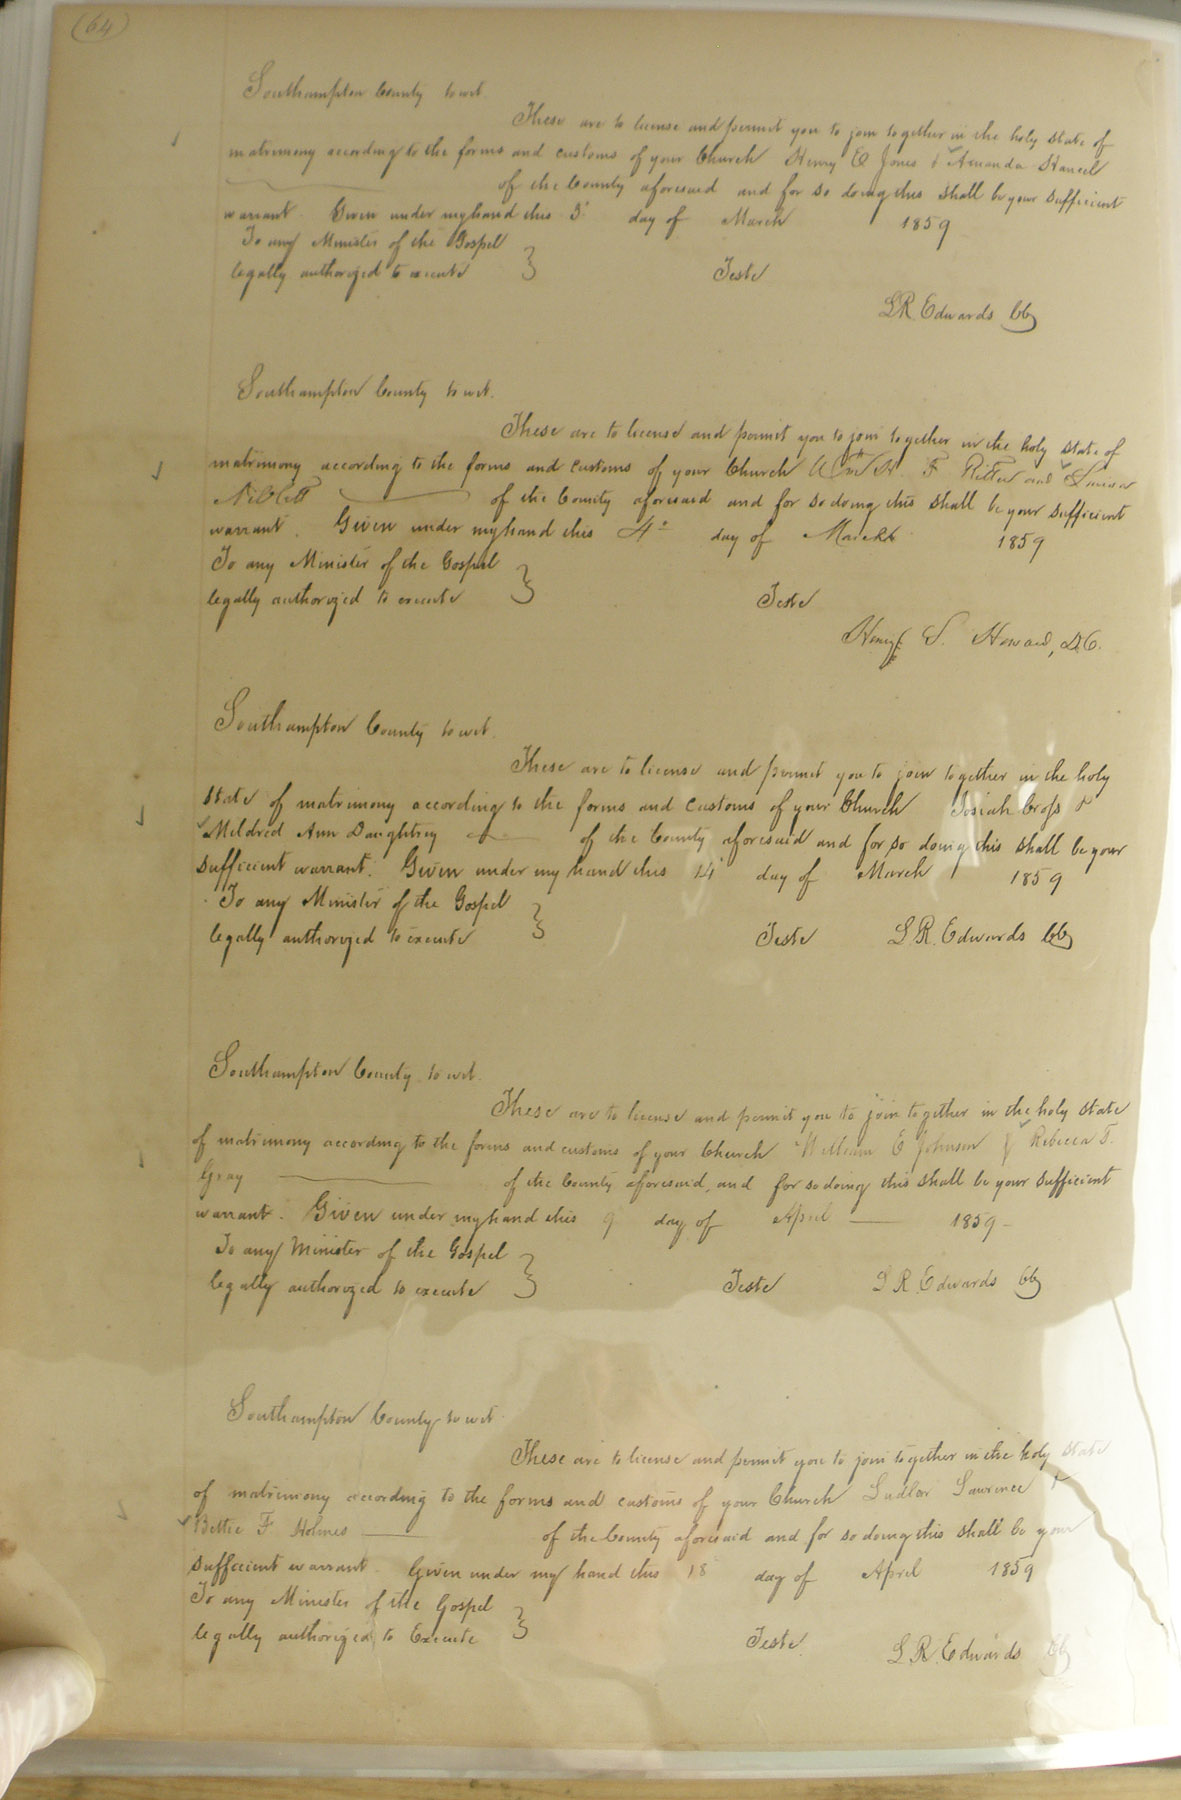 (64)
Southampton County to wit.
These are to license and permit you to join together in the holy state of
matrimony according to the forms and customs of your Church Henry E Jones & Amanda Stancel
of the County aforesaid and for so doing this shall be your sufficient
warrant. Given under my hand this 3' day of March 1859
To any Minister of the Gospel
legally authorized to execute } Teste
L R. Edwards CC
Southampton County to wit.
These are to license and permit you to join together in the holy state of
matrimony according to the forms and customs of your Church Wm H. F Ritter and Louisa
Niblett of the County aforesaid and for so doing this shall be your sufficient
warrant. Given under my hand this 4th day of March 1859
To any Minister of the Gospel
legally authorized to execute } Teste
Henry S. Howard, D.C.
Southampton County to wit.
These are to license and permit you to join together in the holy
state of matrimony according to the forms and customs of your Church Josiah Cross &
Mildred Ann Daughtrey of the County aforesaid and for so doing this shall be your
sufficient warrant. Given under my hand this 14' day of March 1859
To any Minister of the Gospel
legally authorized to execute } Teste L R. Edwards CC
Southampton County to wit.
These are to license and permit you to join together in the holy state
of matrimony according to the forms and customs of your Church William E Johnson & Rebecca T.
Gray of the County aforesaid, and for so doing this shall be your sufficient
warrant. Given under my hand this 9 day of April 1859-
To any Minister of the Gospel
legally authorized to execute } Teste L R. Edwards CC
Southampton County to wit
These are to license and permit you to join together in the holy state
of matrimony according to the forms and customs of your Church Lawrence &
Bettie F Holmes of the County aforesaid and for so doing this shall be your
sufficient warrant. Given under my hand this 18 day of April 1859
To any Minister of the Gospel
legally authorized to Execute } Teste. L R. Edwards CC